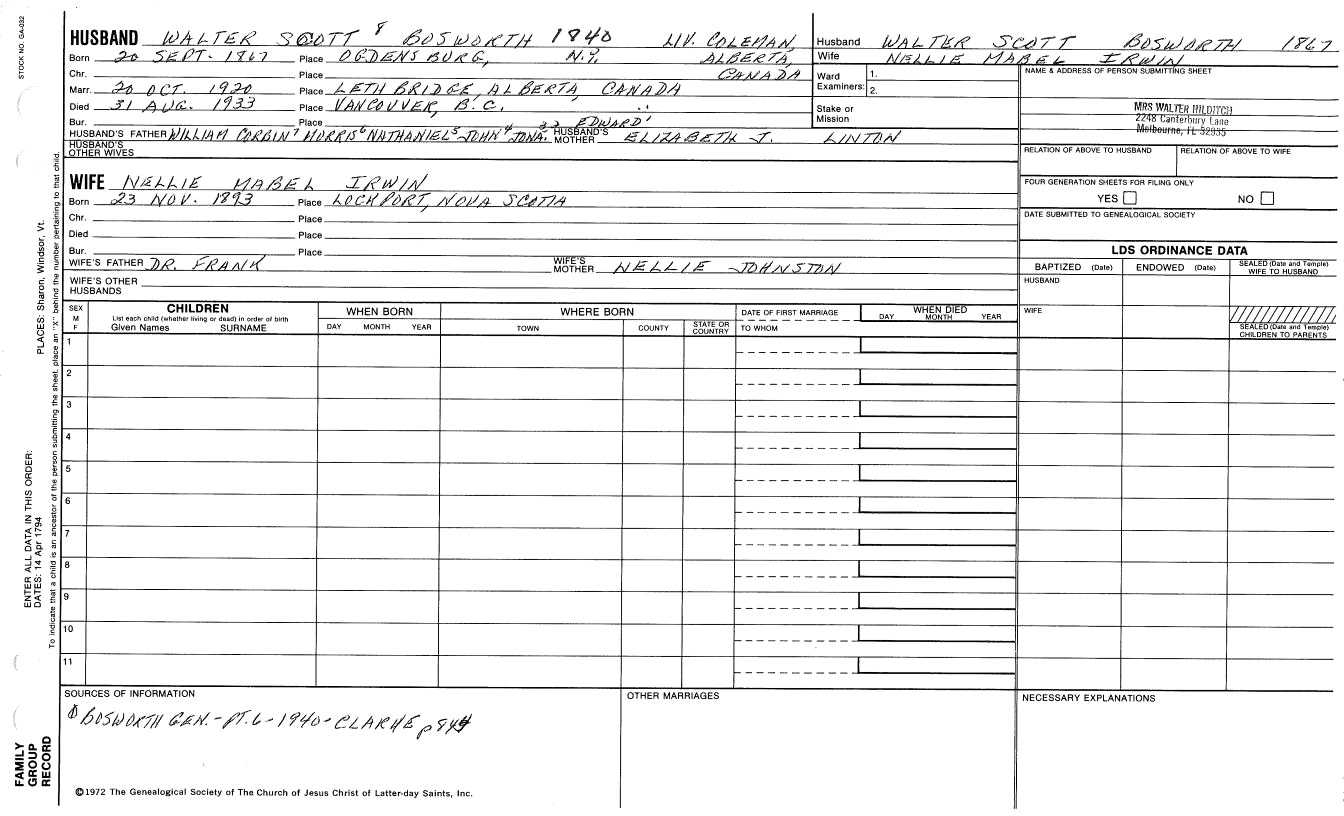 STOCK NO. GA-032
HUSBAND WALTER SCOTT 8 BOSWORTH 1840 LIV. COLEMAN,
Born 20 SEPT. 1867 Place OGDENSBURG, N.Y. ALBERTA,
Chr. Place CANADA
Marr. 20 OCT. 1920 Place LETHBRIDGE, ALBERTA, CANADA
Died 31 AUG. 1933 Place VANCOUVER, B.C.
Bur. Place EDWARD1
HUSBAND'S FATHER WILLIAM CORBIN7 MORRIS6 NATHANIEL5 JOHN4 JONA.32 HUSBAND'S MOTHER ELIZABETH J. LINTON
HUSBAND'S OTHER WIVES
Husband WALTER SCOTT BOSWORTH 1867
Wife NELLIE MABEL IRWIN
Ward Examiners: 1. 2.
Stake or Mission
NAME & ADDRESS OF PERSON SUBMITTING SHEET
MRS WALTER HILDITCH
2248 Canterbury Lane
Melbourne, FL 32935
RELATION OF ABOVE TO HUSBAND RELATION OF ABOVE TO WIFE
FOUR GENERATION SHEETS FOR FILING ONLY
YES NO
DATE SUBMITTED TO GENEALOGICAL SOCIETY
WIFE NELLIE MABEL IRWIN
Born 23 NOV. 1893 Place LOCKPORT, NOVA SCOTIA
Chr. Place
Died Place
Bur. Place
WIFE'S FATHER DR. FRANK WIFE'S MOTHER NELLIE JOHNSTON
WIFE'S OTHER HUSBANDS
LDS ORDINANCE DATA
BAPTIZED (Date) ENDOWED (Date) SEALED (Date and Temple) WIFE TO HUSBAND
HUSBAND
WIFE
SEALED (Date and Temple) CHILDREN TO PARENTS
SEX M F
CHILDREN
List each child (whether living or dead) in order of birth
Given Names SURNAME
WHEN BORN
DAY MONTH YEAR
WHERE BORN
TOWN COUNTY STATE OR COUNTRY
DATE OF FIRST MARRIAGE
TO WHOM
WHEN DIED
DAY MONTH YEAR
1
2
3
4
5
6
7
8
9
10
11
SOURCES OF INFORMATION
BOSWORTH GEN.-PT.6-1940-CLARKE p844
OTHER MARRIAGES
NECESSARY EXPLANATIONS
©1972 The Genealogical Society of The Church of Jesus Christ of Latter-day Saints, Inc.
ENTER ALL DATA IN THIS ORDER:
DATES: 14 Apr 1794
PLACES: Sharon, Windsor, Vt.
To indicate that a child is an ancestor of the person submitting the sheet, place an "X" behind the number pertaining to that child.
FAMILY
GROUP
RECORD